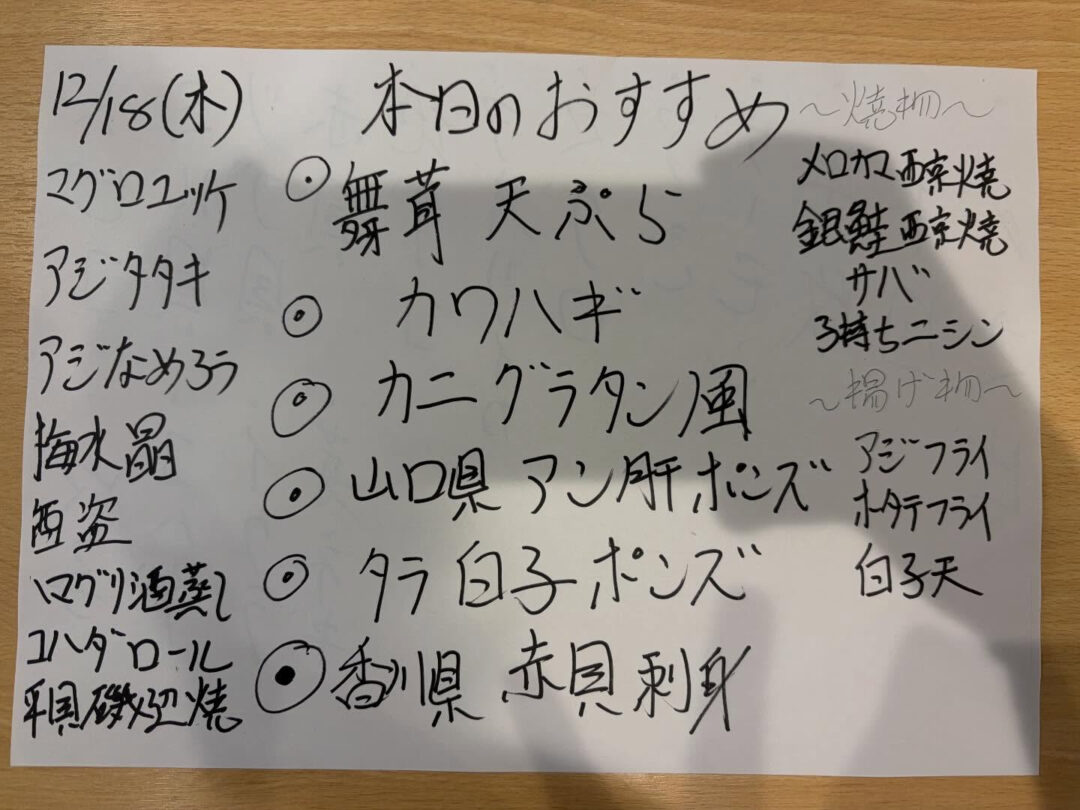 12/18(木)
本日のおすすめ
マグロユッケ
アジタタキ
アジなめろう
梅水晶
酒盗
ハマグリ酒蒸し
コハダロール
平貝磯辺焼
◎舞茸 天ぷら
◎カワハギ
◎カニグラタン風
◎山口県 アン肝ポンズ
◎タラ白子ポンズ
◎香川県 赤貝刺身
〜焼物〜
メロカマ西京焼
銀鮭西京焼
サバ
子持ちニシン
〜揚げ物〜
アジフライ
ホタテフライ
白子天